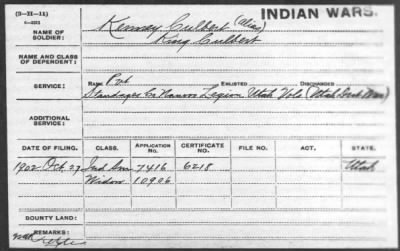 (3-21-11)
6-2221
INDIAN WARS.
NAME OF SOLDIER:
Kenney Culbert (Alias)
King Culbert
NAME AND CLASS OF DEPENDENT:
SERVICE:
RANK Pvt ENLISTED DISCHARGED
Standages Co Nauvoo Legion Utah Vols (Utah Ind. War)
ADDITIONAL SERVICE:
DATE OF FILING. CLASS. APPLICATION NO. CERTIFICATE NO. FILE NO. ACT. STATE.
1902 Oct. 27 Ind Surv 7416 6218 Utah
Widow 10906
BOUNTY LAND:
REMARKS: